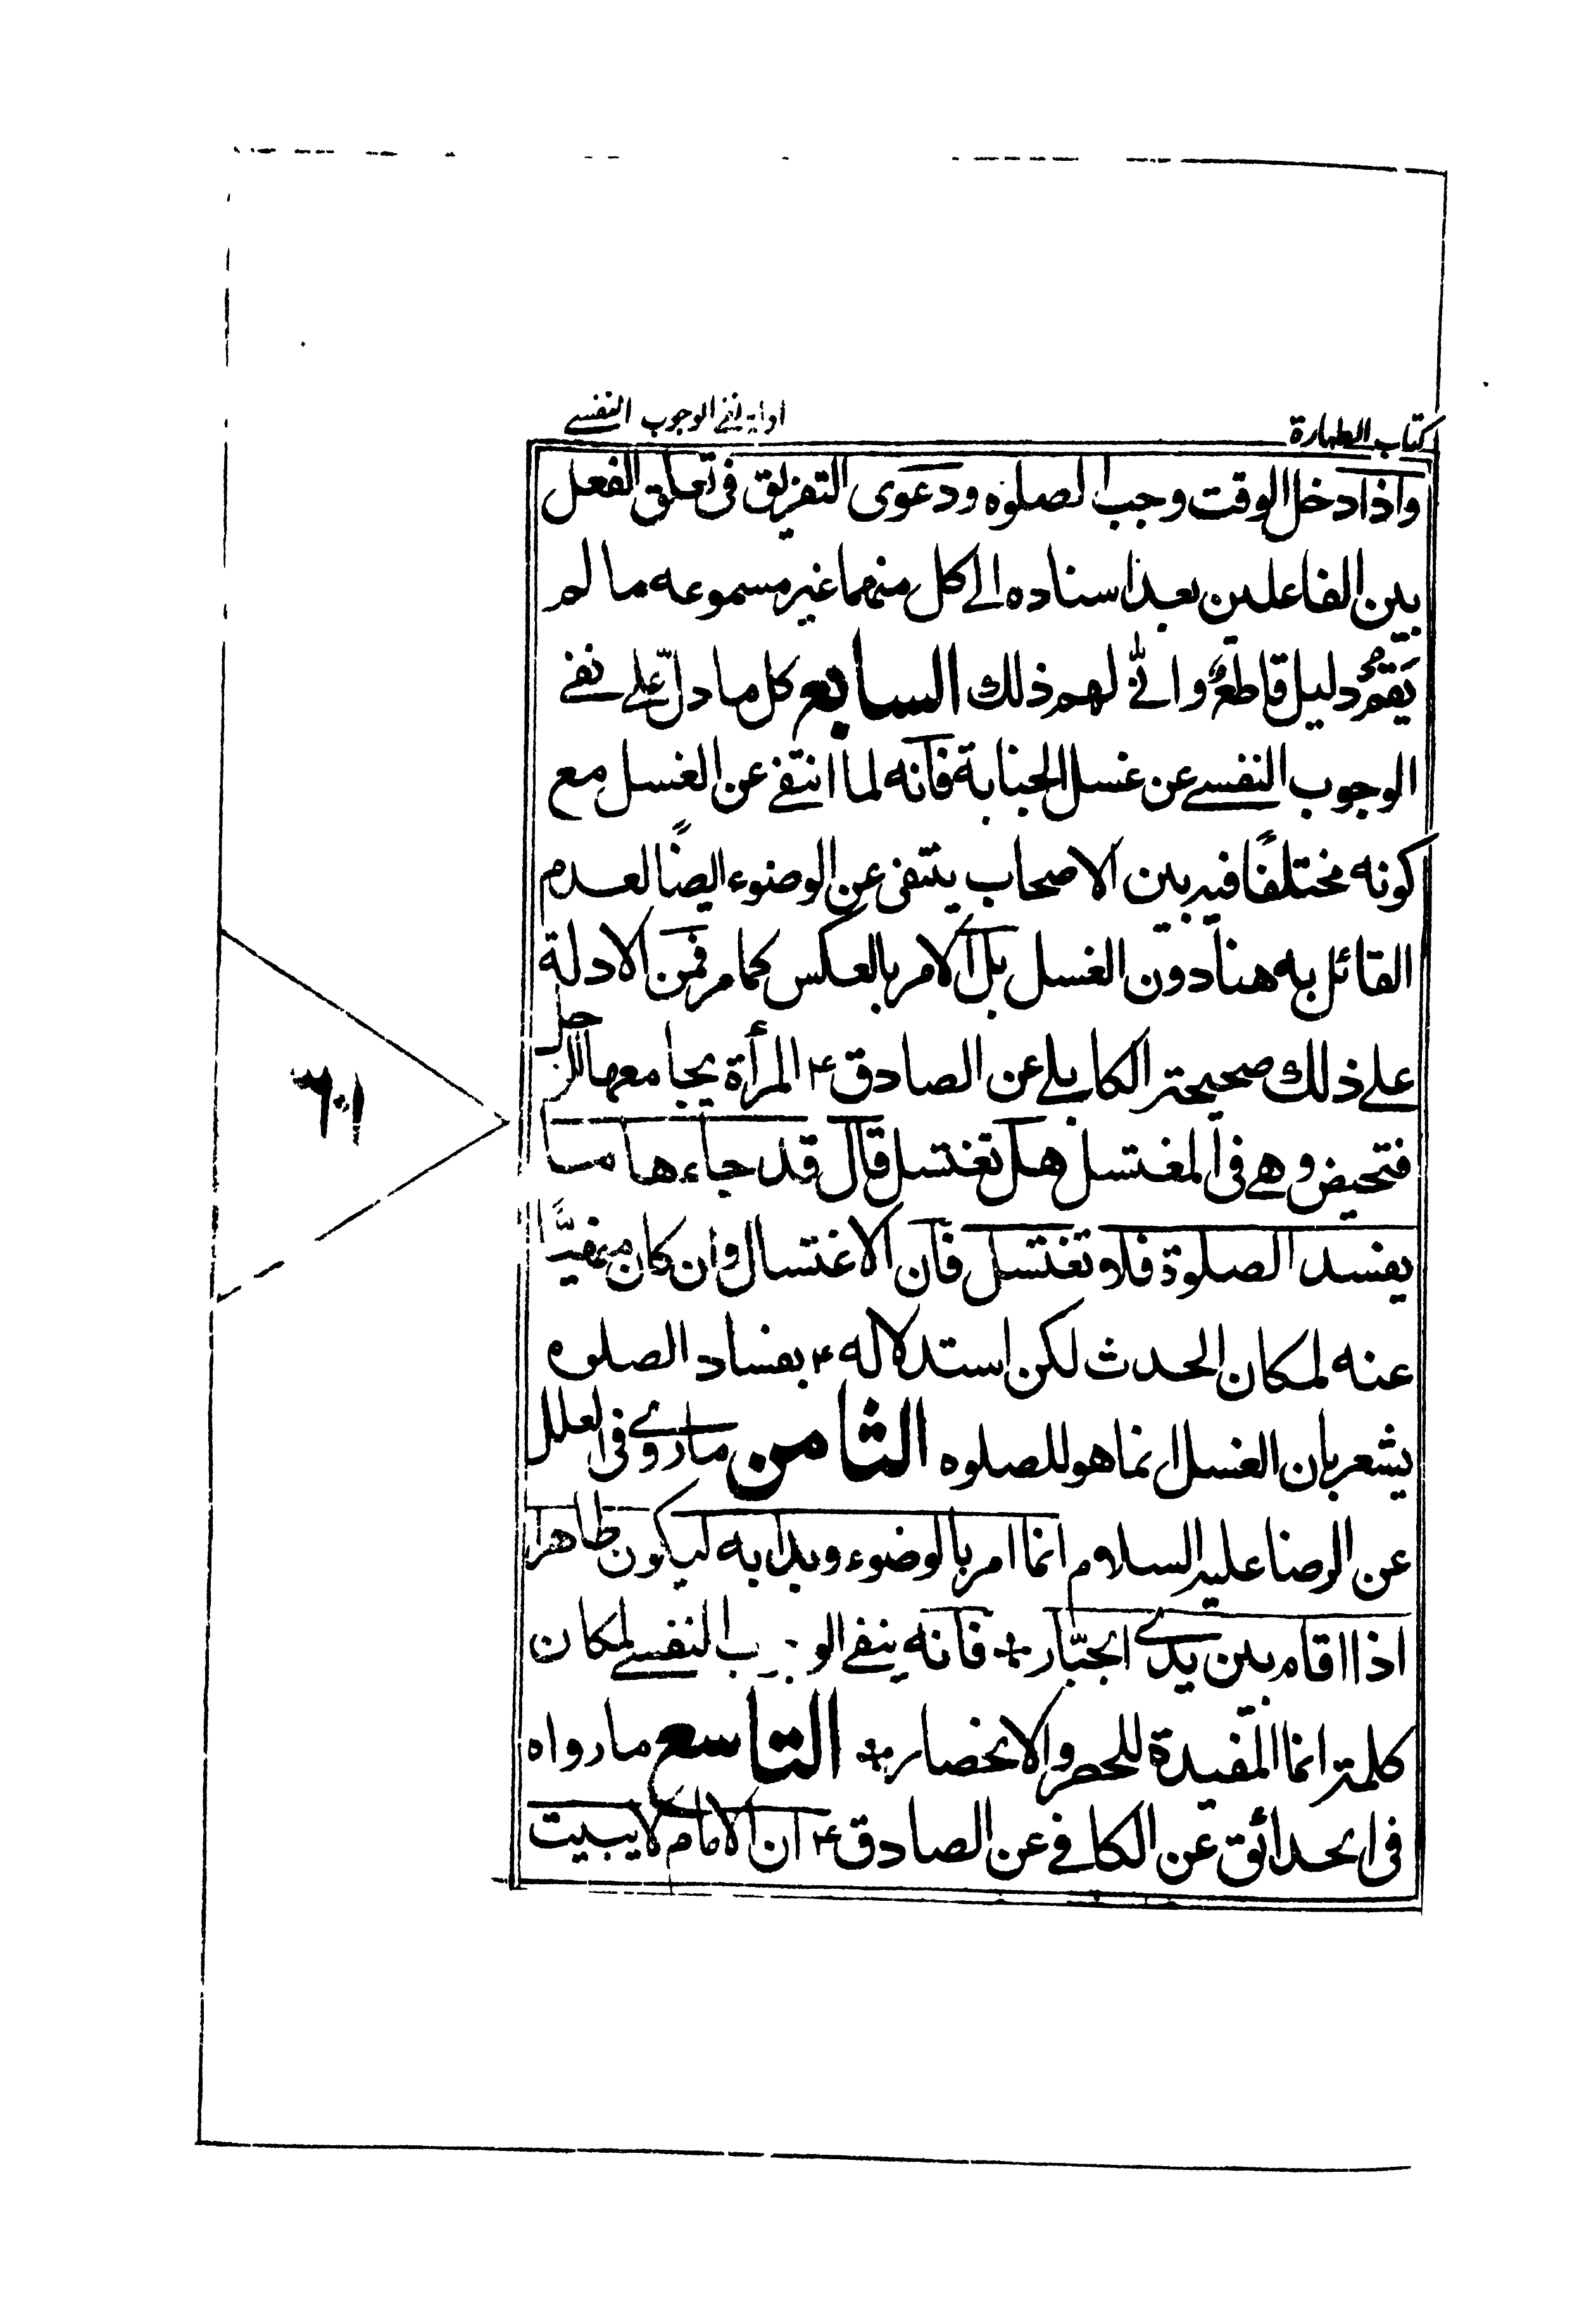 كتاب الطهارة
ادلة نفى الوجوب النفسى
واذا دخل الوقت وجب الصلوة ودعوى التفريق فى تعلق الفعل
بين الفاعلين بعد اسناده الى كل منهما غير مسموعه ما لم
يقم دليل قاطع وانّى لهم ذلك السابع كل ما دلّ على نفى
الوجوب النفسى عن غسل الجنابة فانه لما انتفى عن الغسل مع
كونه مختلفًا فيه بين الاصحاب ينتفى عن الوضوء ايضًا لعدم
القائل به هنا دون الغسل بل الامر بالعكس كما مر فمن الادلة
على ذلك صحيحة الكابلى عن الصادق ع المرأة يجامعها الرجل
فتحيض وهى فى المغتسل هل تغتسل قال قد جاءها ما
يفسد الصلوة فلا تغتسل فان الاغتسال وان كان منفيًّا
عنه لمكان الحدث لكن استدلاله ع بفساد الصلوه
يشعر بان الغسل انما هو للصلوه الثامن ما روى فى العلل
عن الرضا عليه السلام انما امر بالوضوء وبدا به ليكون طاهرا
اذا اقام بين يدى الجبّار فانه ينفى الوجوب النفسى لمكان
كلمة انما المفيدة للحصر والانحصار التاسع ما رواه
فى الحدائق عن الكافى عن الصادق ع ان الامام لا يبيت